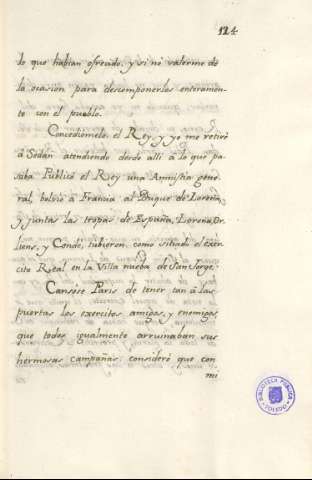 124
lo que habian ofrecido, y si nó valerme de
la ocasion para descomponerles enteramen-
te con el pueblo.
Concediomelo el Rey, y yo me retiré
á Sedán atendiendo desde alli á lo que pa-
saba. Publicó el Rey una Amnistia gene-
ral, bolvió á Francia al Duque de Lorena,
y juntas las tropas de España, Lorena, Or-
liens, y Condé, tubieron como sitiado el exer-
cito Real en la Villa nueba de San Jorge.
Cansose París de tener tan á las
puertas los exercitos amigos, y enemigos,
que todos igualmente arruinaban sus
hermosas campañas: consideró que con
mi
BIBLIOTECA PUBLICA
TOLEDO